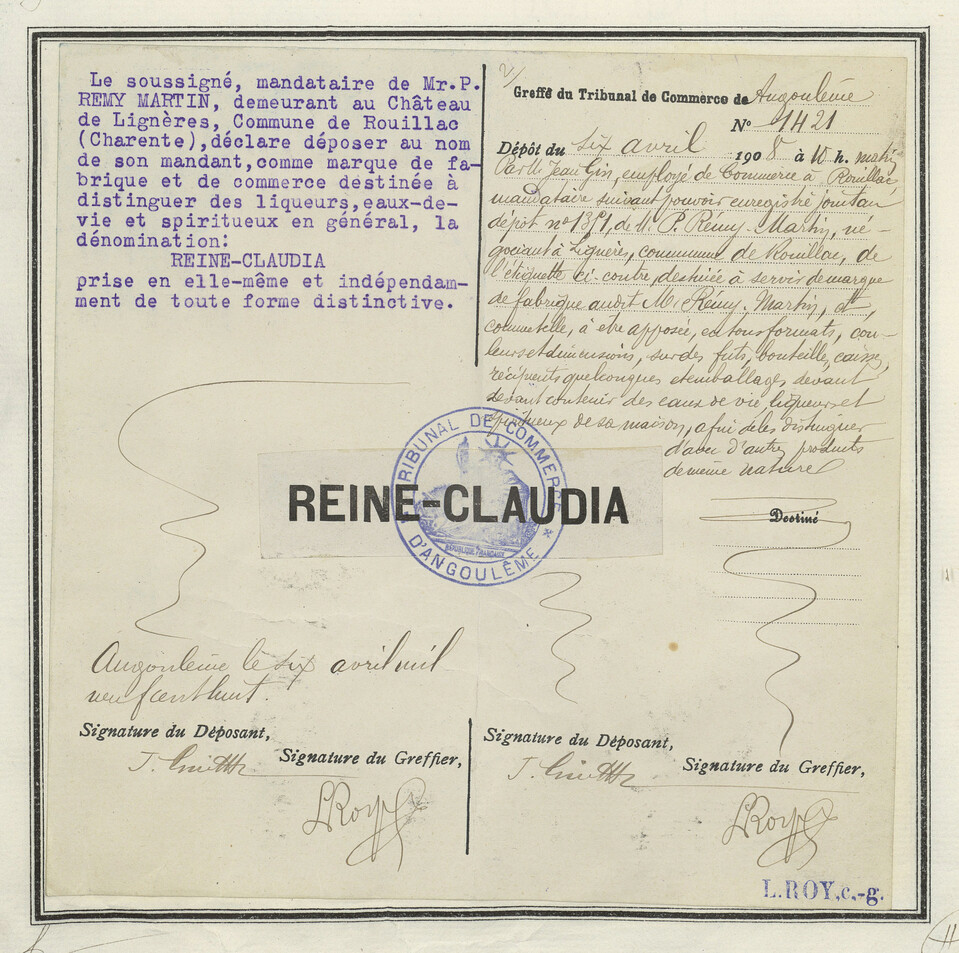 Le soussigné, mandataire de Mr.P.
REMY MARTIN, demeurant au Château
de Lignères, Commune de Rouillac
(Charente),déclare déposer au nom
de son mandant,comme marque de fa-
brique et de commerce destinée à
distinguer des liqueurs,eaux-de-
vie et spiritueux en général, la
dénomination:
REINE-CLAUDIA
prise en elle-même et indépendam-
ment de toute forme distinctive.
2/
Greffe du Tribunal de Commerce de Angoulême
No 1421
Dépôt du six avril 1908 à 10 h. matin
Par M. Jean Gin, employé de Commerce à Rouillac,
mandataire suivant pouvoir enregistré joint au
dépôt no 1351, de M. P. Rémy-Martin, né-
gociant à Lignère, commune de Rouillac, de
l'étiquette ci-contre, destinée à servir de marque
de fabrique audit Mr Rémy-Martin, et,
comme telle, à être apposée, en tous formats, cou-
leurs et dimensions, sur des futs, bouteilles, caisses,
récipients quelconques et emballages devant
devant contenir des eaux de vie, liqueurs et
spiritueux de sa maison, afin de les distinguer
d'avec d'autres produits
de même nature
TRIBUNAL DE COMMERCE
D'ANGOULÊME
RÉPUBLIQUE FRANÇAISE
REINE-CLAUDIA
Destiné
Angoulême le six avril mil
neuf cent huit.
Signature du Déposant,
Signature du Greffier,
LRoy
Signature du Déposant,
Signature du Greffier,
LRoy
L.ROY,c.-g.